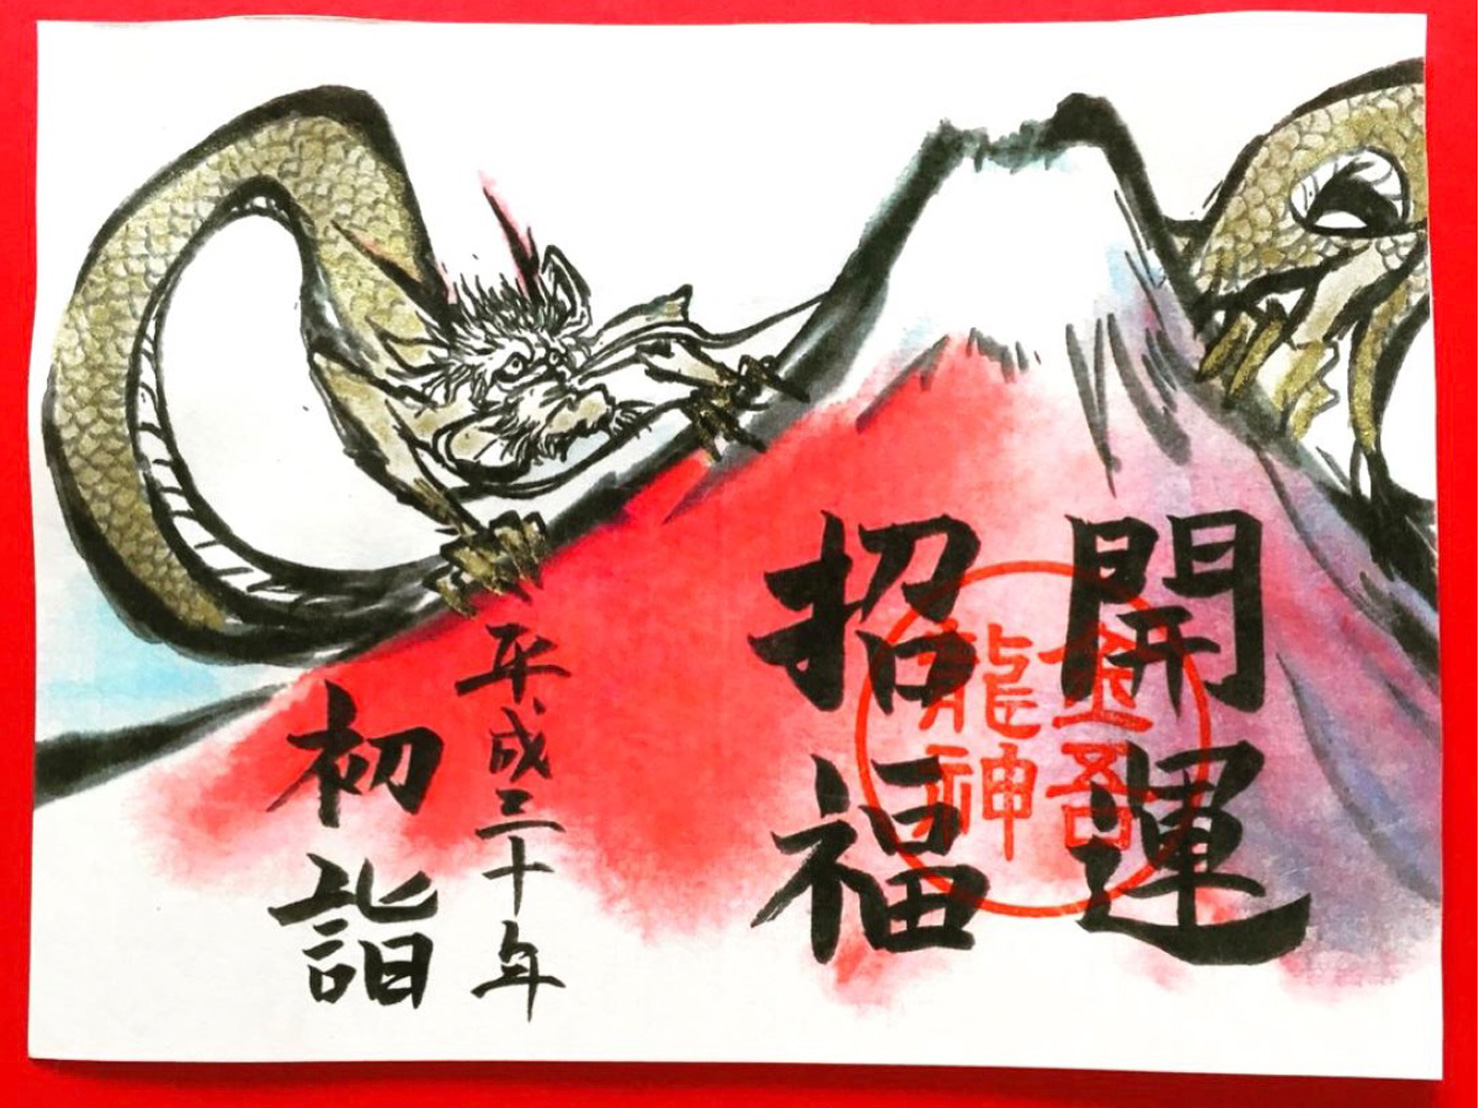 開運
招福
金吾
龍神
平成三十年
初詣